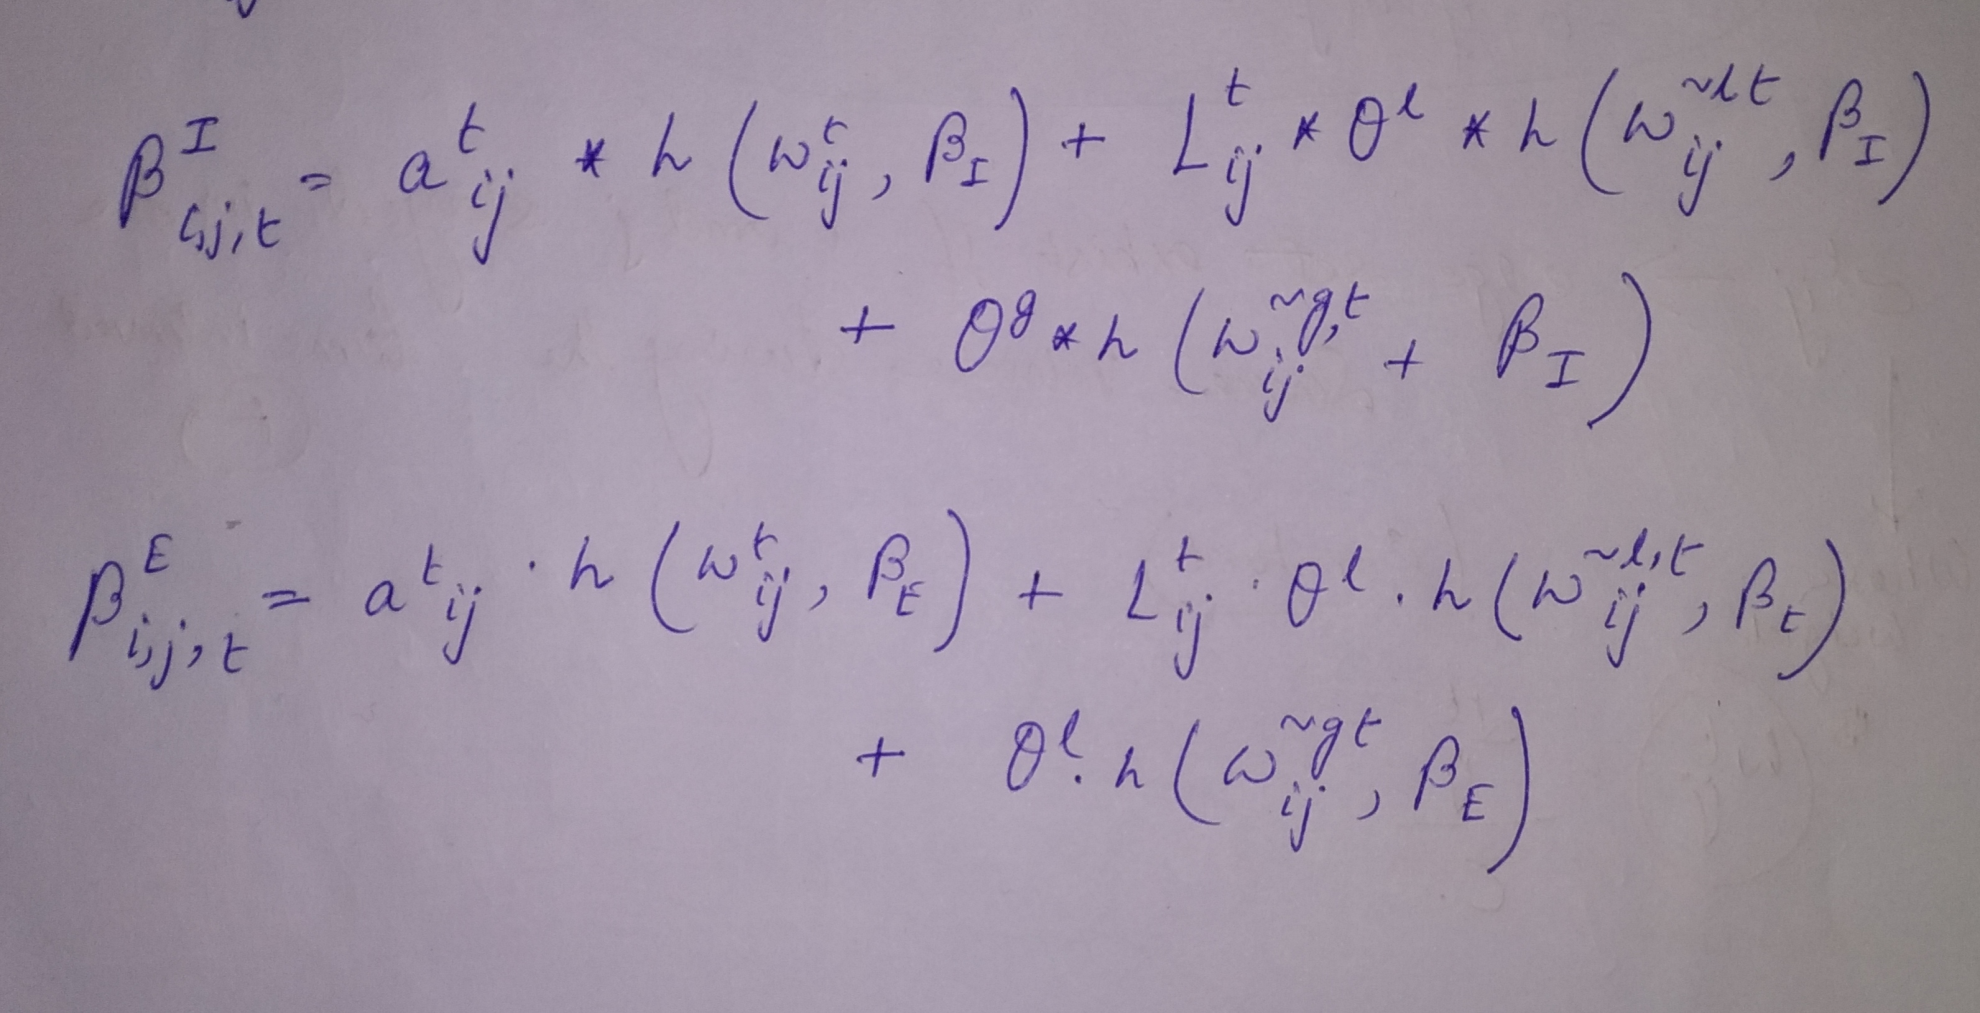 β^I_{i,j,t} = a^t_{ij} * h (w^t_{ij}, β_I) + L^t_{ij} * θ^l * h (w^{~lt}_{ij}, β_I)
+ θ^g * h (w^{~g,t}_{ij} + β_I)
β^E_{i,j,t} = a^t_{ij} · h (w^t_{ij}, β_E) + L^t_{ij} · θ^l . h (w^{~l,t}_{ij}, β_E)
+ θ^l . h (w^{~gt}_{ij}, β_E)